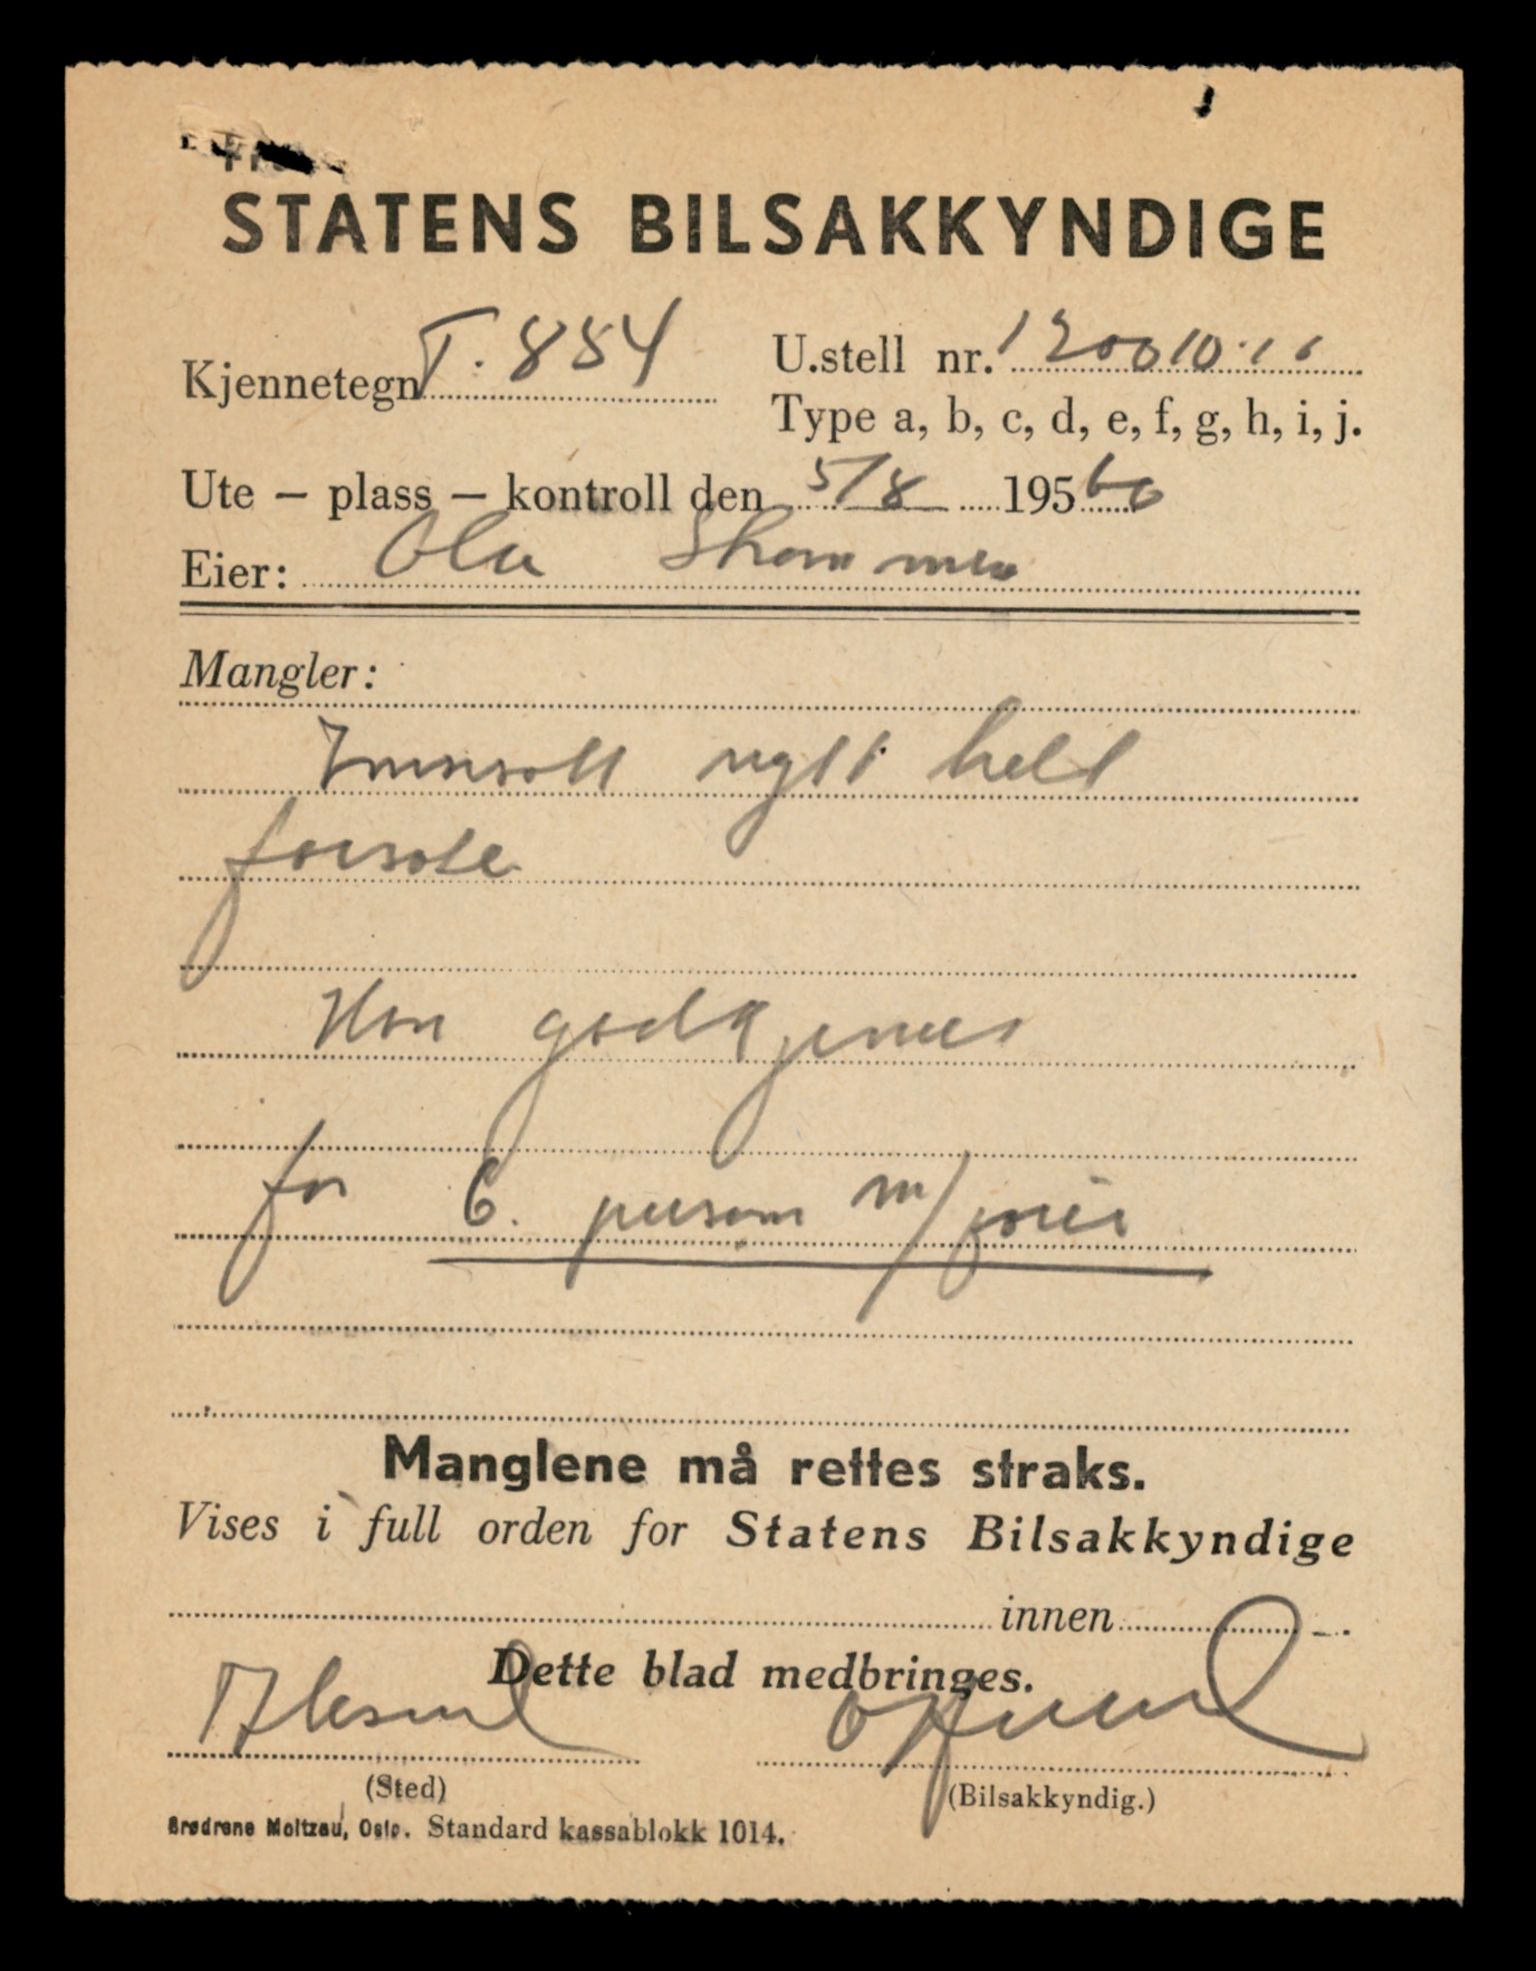 Fra
STATENS BILSAKKYNDIGE
Kjennetegn T. 854 U.stell nr. 12001016
Type a, b, c, d, e, f, g, h, i, j.
Ute – plass – kontroll den 5/8 19560
Eier: Ola
Mangler:
helt
Kan godkjennes
for 6. person m/
Manglene må rettes straks.
Vises i full orden for Statens Bilsakkyndige
innen
Dette blad medbringes.
Ålesund
(Sted) (Bilsakkyndig.)
Brødrene Moltzau, Oslo. Standard kassablokk 1014.